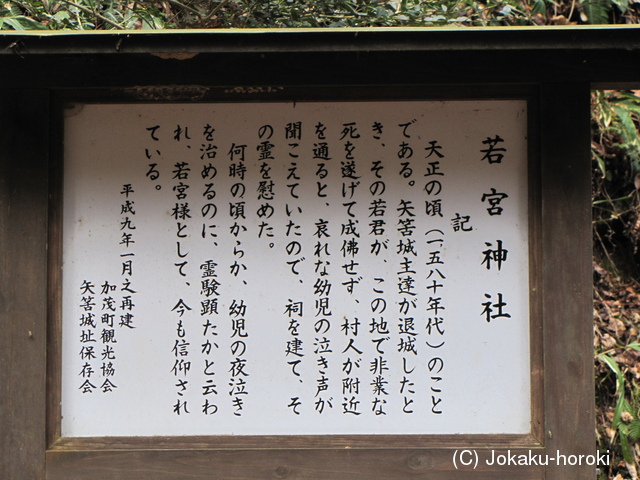 若宮神社
記
天正の頃（一、五八十年代）のこと
である。矢筈城主達が退城したと
き、その若君が、この地で非業な
死を遂げて成佛せず、村人が附近
を通ると、哀れな幼児の泣き声が
聞こえていたので、祠を建て、そ
の霊を慰めた。
何時の頃からか、幼児の夜泣き
を治めるのに、霊験顕たかと云わ
れ、若宮様として、今も信仰され
ている。
平成九年一月之再建
加茂町観光協会
矢筈城址保存会
(C) Jokaku-horoki